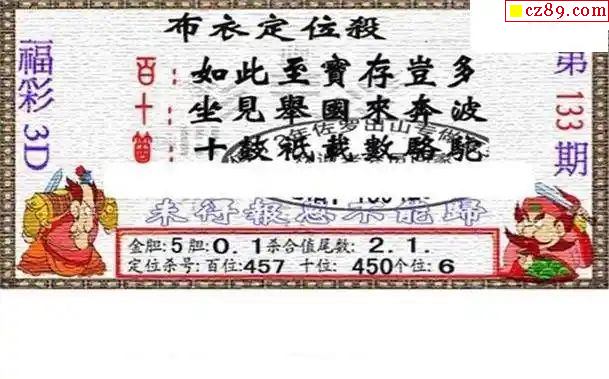 cz89.com
布衣定位殺
福彩3D
第133期
百：如此至寶存豈多
十：坐見舉國來奔波
十鼓祇載數駱駝
未得報恩不能歸
金胆:5胆:0.1杀合值尾数:2.1.
定位杀号:百位:457 十位:450个位:6